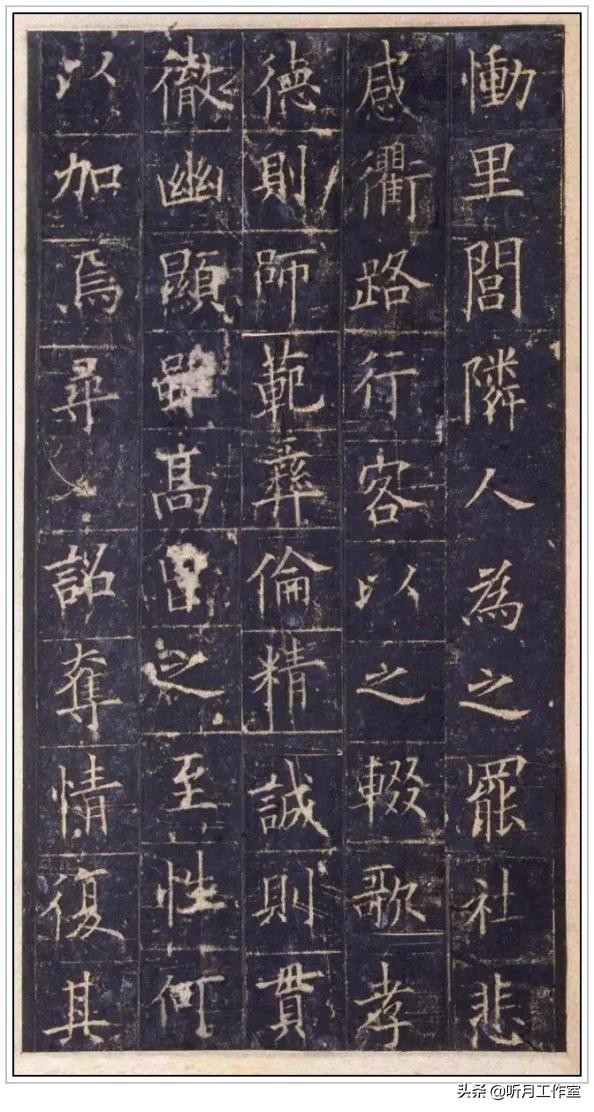 慟里閭隣人為之罷社悲
感衢路行客以之輟歌孝
德則師範彝倫精誠則貫
徹幽顯雖高曾之至性何
以加焉尋又詔奪情復其
头条 @听月工作室